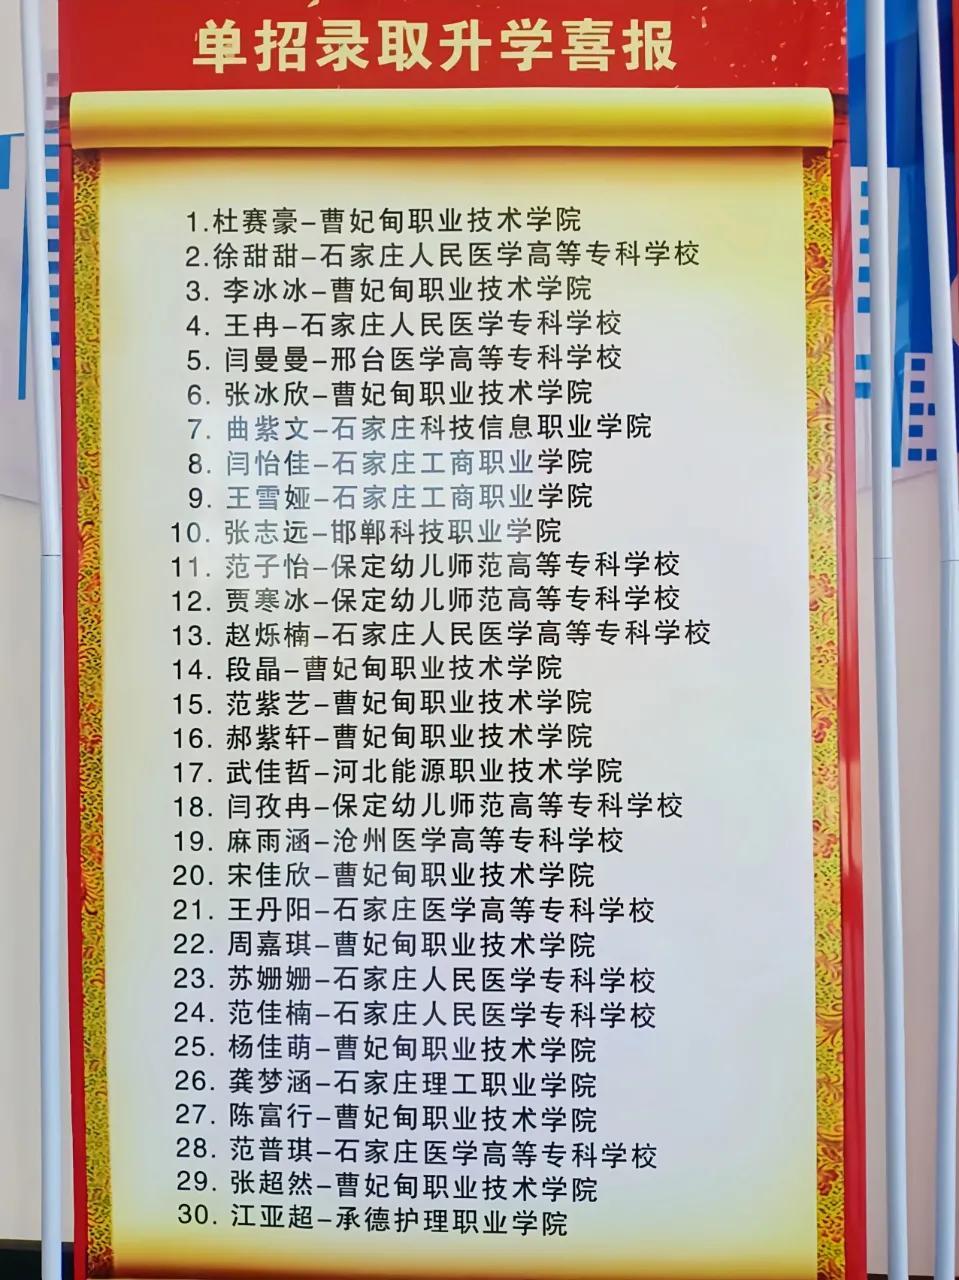 单招录取升学喜报
1.杜赛豪-曹妃甸职业技术学院
2.徐甜甜-石家庄人民医学高等专科学校
3. 李冰冰-曹妃甸职业技术学院
4. 王冉-石家庄人民医学专科学校
5. 闫曼曼-邢台医学高等专科学校
6. 张冰欣-曹妃甸职业技术学院
7. 曲紫文-石家庄科技信息职业学院
8. 闫怡佳-石家庄工商职业学院
9. 王雪娅-石家庄工商职业学院
10. 张志远-邯郸科技职业学院
11. 范子怡-保定幼儿师范高等专科学校
12. 贾寒冰-保定幼儿师范高等专科学校
13. 赵烁楠-石家庄人民医学高等专科学校
14. 段晶-曹妃甸职业技术学院
15. 范紫艺-曹妃甸职业技术学院
16. 郝紫轩-曹妃甸职业技术学院
17. 武佳哲-河北能源职业技术学院
18. 闫孜冉-保定幼儿师范高等专科学校
19. 麻雨涵-沧州医学高等专科学校
20. 宋佳欣-曹妃甸职业技术学院
21. 王丹阳-石家庄医学高等专科学校
22. 周嘉琪-曹妃甸职业技术学院
23. 苏姗姗-石家庄人民医学专科学校
24. 范佳楠-石家庄人民医学专科学校
25. 杨佳萌-曹妃甸职业技术学院
26. 龚梦涵-石家庄理工职业学院
27. 陈富行-曹妃甸职业技术学院
28. 范普琪-石家庄医学高等专科学校
29. 张超然-曹妃甸职业技术学院
30. 江亚超-承德护理职业学院